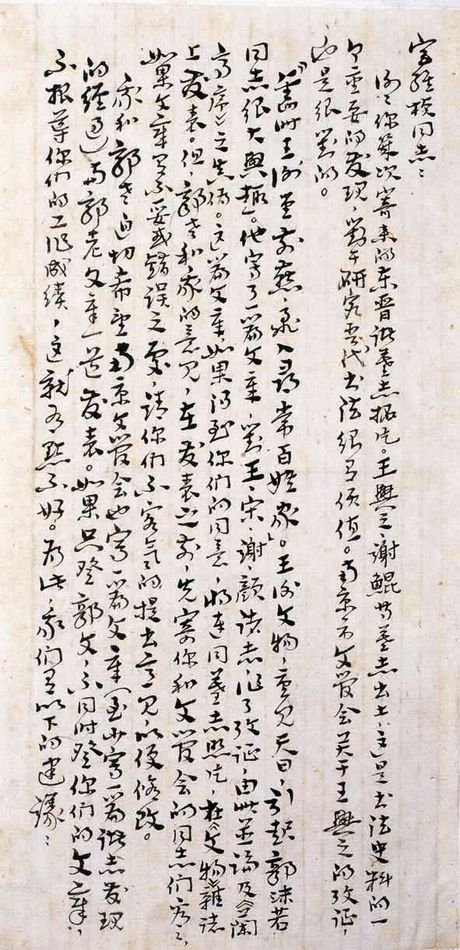 宫维桢同志：
谢谢你几次寄来的东晋诸墓志拓片。王興之、谢鲲等墓志出土，这是书法史料的一
个重要的发现，對于研究当代书法很有價值。南京市文管会关于王興之的考证，
也是很對的。
“舊时王谢堂前燕，飛入尋常百姓家”。王谢文物，重见天日，引起郭沫若
同志很大興趣。他写了一篇文章，對王、宋、谢、颜诸志，作了考证，由此并论及《兰
亭序》之真伪。这篇文章，如果得到你们的同意，将连同墓志照片，在《文物》雜志
上发表。但，郭老和我的意见，在发表之前，先寄你和文管会的同志们看看，
如果文章有不妥或错误之处，请你们不客气的提出意见，以便修改。
我和郭老迫切希望南京文管会也写一篇文章（至少写一篇诸志发现
的经过）与郭老文章一道发表。如果只登郭文，不同时登你们的文章，
不报导你们的工作成绩，这就有點不好。为此，我们有以下的建议：